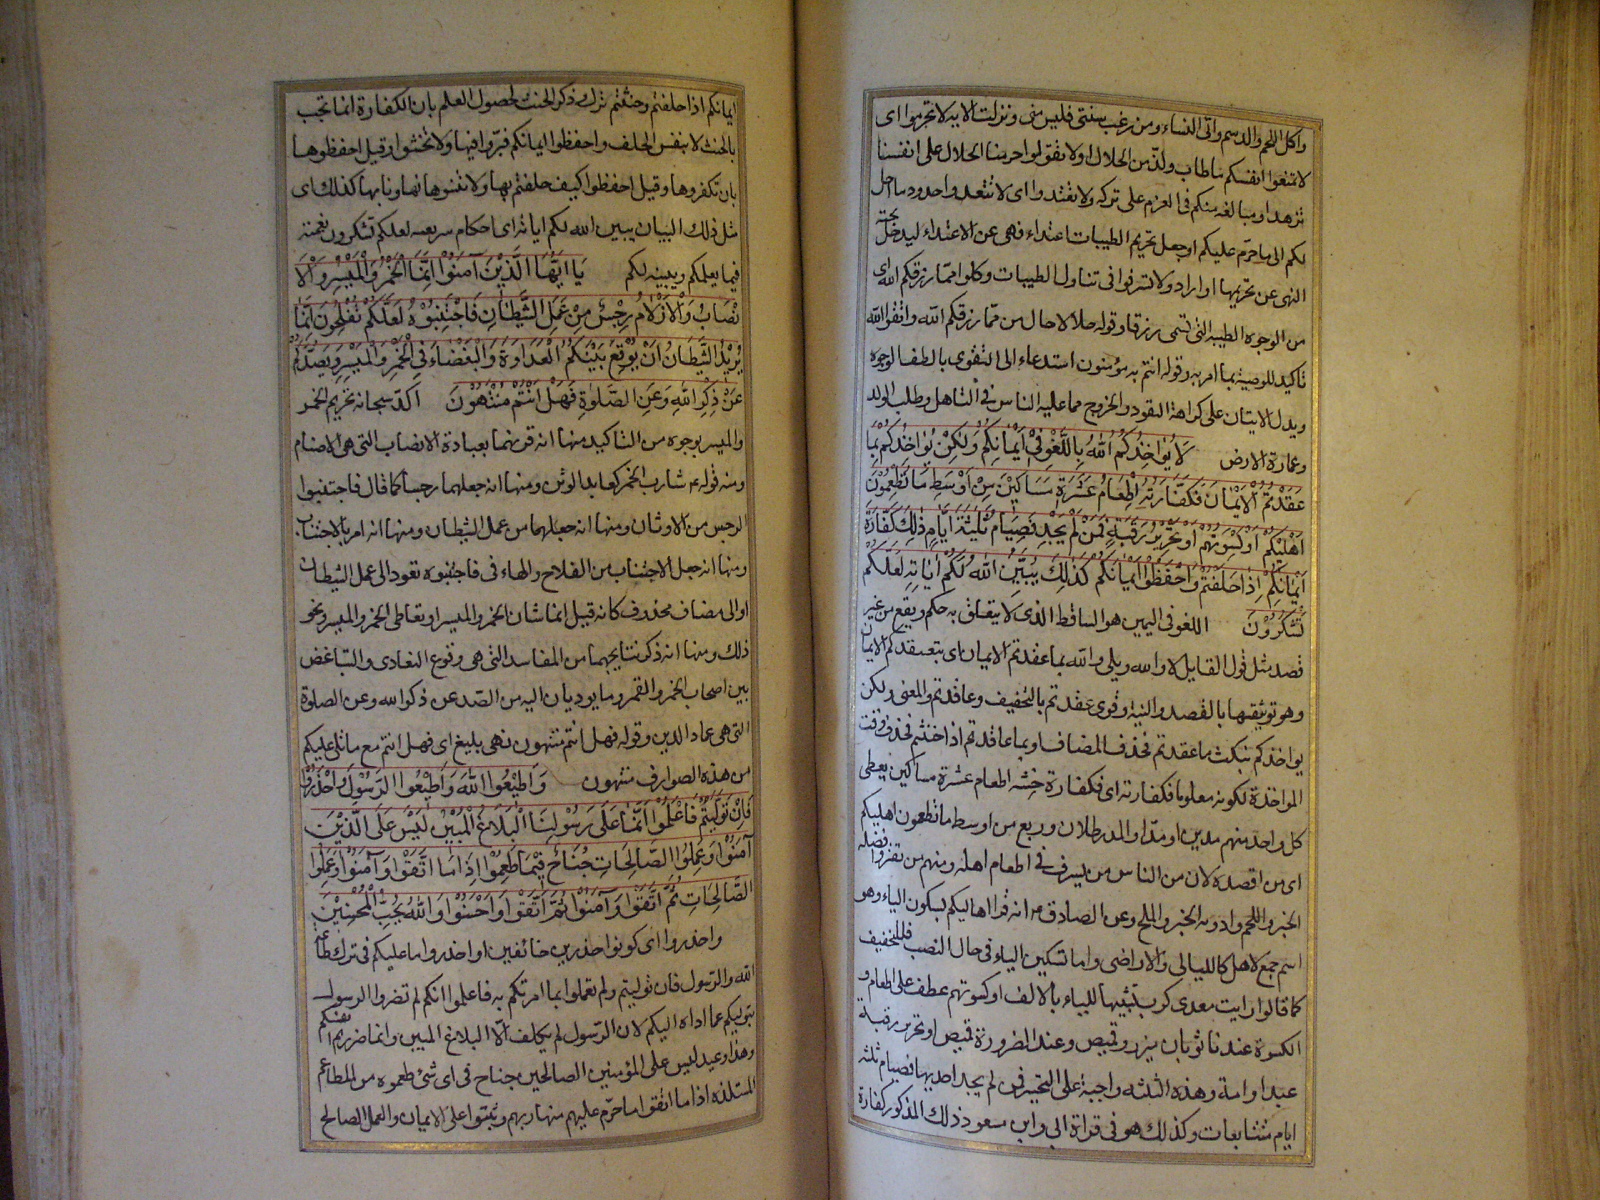 واكل اللحم والدسم واتى النساء ومن رغب سنتى فليس منى ونزلت الاية لا تحرموا اى
لا تمنعوا انفسكم ما طاب ولذ من الحلال او لا تقولوا حرمنا الحلال على انفسنا
تزهدا ومبالغة منكم فى العزم على تركه ولا تعتدوا اى لا تتعدوا حدود ما احل
لكم الى ما حرم عليكم او جعل تحريم الطيبات اعتداء فنهى عن الاعتداء ليدخل تحته
النهى عن تحريمها او اراد ولا تسرفوا فى تناول الطيبات وكلوا مما رزقكم الله اى
من الوجوه الطيبة التى تسمى رزقا وقوله حلالا حال من مما رزقكم الله واتقوا الله
تاكيد للوصية بما امر به وقوله انتم به مؤمنون استدعاء الى التقوى بالطف الوجوه
ويدل الايتان على كراهة التفرد والخروج مما عليه الناس فى التاهل وطلب الولد
وعمارة الارض لَا يُؤَاخِذُكُمُ اللّٰهُ بِاللَّغْوِ فِىْ اَيْمَانِكُمْ وَلٰكِنْ يُؤَاخِذُكُمْ بِمَا
عَقَدْتُمُ الْاَيْمَانَ فَكَفَّارَتُهُ اِطْعَامُ عَشَرَةِ مَسَاكِيْنَ مِنْ اَوْسَطِ مَا تُطْعِمُوْنَ
اَهْلِيْكُمْ اَوْ كِسْوَتُهُمْ اَوْ تَحْرِيْرُ رَقَبَةٍ فَمَنْ لَمْ يَجِدْ فَصِيَامُ ثَلٰثَةِ اَيَّامٍ ذٰلِكَ كَفَّارَةُ
اَيْمَانِكُمْ اِذَا حَلَفْتُمْ وَاحْفَظُوْا اَيْمَانَكُمْ كَذٰلِكَ يُبَيِّنُ اللّٰهُ لَكُمْ اٰيَاتِهِ لَعَلَّكُمْ
تَشْكُرُوْنَ اللغو فى اليمين هو الساقط الذى لا يتعلق به حكم ويقع من غير
قصد مثل قول القايل لا والله وبلى والله بما عقدتم الايمان اى بتعقيدكم الايمان
وهو توثيقها بالقصد والنية وقرى عقدتم بالتخفيف وعاقدتم والمعنى ولكن
يواخذكم بنكث ما عقدتم فحذف المضاف او بما عاقدتم اذا حنثتم فحذف وقت
المواخذة لكونه معلوما فكفارته اى فكفارة حنثه اطعام عشرة مساكين يعطى
كل واحد منهم مدين او مدا والمد رطلان وربع من اوسط ما تطعمون اهليكم
اى من اقصده لان من الناس من يسرف فى اطعام اهله ومنهم من يقتر وافضله
الخبز واللحم وادونه الخبز والملح وعن الصادق ع انه قرا اهاليكم بسكون الياء وهو
اسم جمع لاهل كالليالى والاراضى واما تسكين الياء فى حال النصب فللتخفيف
كما قالوا رايت معدى كرب تشبيها للياء بالالف او كسوتهم عطف على اطعام و
الكسوة عندنا ثوبان ميزر وقميص وعند الضرورة قميص او تحرير رقبة
عبد او امة وهذه الثلثة واجبة على التخيير فمن لم يجد احديها فصيام ثلثة
ايام متتابعات وكذلك هو فى قراة ابى وابن مسعود ذلك المذكور كفارة
ايمانكم اذا حلفتم وحنثتم ترك ذكر الحنث لحصول العلم بان الكفارة انما تجب
بالحنث لا بنفس الحلف واحفظوا ايمانكم فبروا فيها ولا تحنثوا وقيل احفظوها
بان تكفروها وقيل احفظوا كيف حلفتم بها ولا تنسوها تهاونا بها كذلك اى
مثل ذلك البيان يبين الله لكم اياته اى احكام شريعته لعلكم تشكرون نعمته
فيما يعلمكم ويبينه لكم يَا اَيُّهَا الَّذِيْنَ آمَنُوْا اِنَّمَا الْخَمْرُ وَالْمَيْسِرُ وَالْاَ
نْصَابُ وَالْاَزْلَامُ رِجْسٌ مِنْ عَمَلِ الشَّيْطَانِ فَاجْتَنِبُوْهُ لَعَلَّكُمْ تُفْلِحُوْنَ اِنَّمَا
يُرِيْدُ الشَّيْطَانُ اَنْ يُوْقِعَ بَيْنَكُمُ الْعَدَاوَةَ وَالْبَغْضَاءَ فِى الْخَمْرِ وَالْمَيْسِرِ وَيَصُدَّكُمْ
عَنْ ذِكْرِ اللّٰهِ وَعَنِ الصَّلٰوةِ فَهَلْ اَنْتُمْ مُنْتَهُوْنَ اكد سبحانه تحريم الخمر
والميسر بوجوه من التاكيد منها انه قرنهما بعبادة الانصاب التى هى الاصنام
ومنه قوله ع شارب الخمر كعابد الوثن ومنها انه جعلهما رجسا كما قال فاجتنبوا
الرجس من الاوثان ومنها انه جعلهما من عمل الشيطان ومنها انه امر بالاجتناب
ومنها انه جعل الاجتناب من الفلاح والهاء فى فاجتنبوه تعود الى عمل الشيطان
او الى مضاف محذوف كانه قيل انما شان الخمر والميسر او تعاطى الخمر والميسر ونحو
ذلك ومنها انه ذكر نتايجهما من المفاسد التى هى وقوع التعادى والتباغض
بين اصحاب الخمر والقمر وما يوديان اليه من الصد عن ذكر الله وعن الصلوة
التى هى عماد الدين وقوله فهل انتم منتهون نهى بليغ اى فهل انتم مع ما تلى عليكم
من هذه الصوارف منتهون وَاَطِيْعُوا اللّٰهَ وَاَطِيْعُوا الرَّسُوْلَ وَاحْذَرُوْا
فَاِنْ تَوَلَّيْتُمْ فَاعْلَمُوْا اَنَّمَا عَلَى رَسُوْلِنَا الْبَلَاغُ الْمُبِيْنُ لَيْسَ عَلَى الَّذِيْنَ
آمَنُوْا وَعَمِلُوا الصَّالِحَاتِ جُنَاحٌ فِيْمَا طَعِمُوْا اِذَا مَا اتَّقَوْا وَآمَنُوْا وَعَمِلُوا
الصَّالِحَاتِ ثُمَّ اتَّقَوْا وَآمَنُوْا ثُمَّ اتَّقَوْا وَاَحْسَنُوْا وَاللّٰهُ يُحِبُّ الْمُحْسِنِيْنَ
واحذروا اى كونوا حذرين خائفين او احذروا ما عليكم فى ترك طاعة
الله والرسول فان توليتم ولم تعملوا بما امرتكم به فاعلموا انكم لم تضروا الرسول
بتوليكم عما اداه اليكم لان الرسول لم يكلف الا البلاغ المبين وانما ضررتم انفسكم
وهذا وعيد ليس على المؤمنين الصالحين جناح فى اى شئ طعموه من المطاعم
المستلذة اذا ما اتقوا ما حرم عليهم منها ربهم وثبتوا على الايمان والعمل الصالح